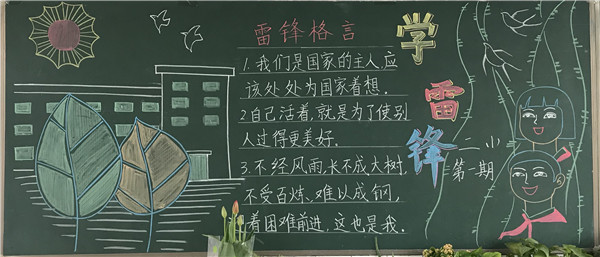 雷锋格言
1.我们是国家的主人,应
该处处为国家着想.
2自己活着,就是为了使别
人过得更美好.
3.不经风雨,长不成大树,
不受百炼,难以成钢,
着困难前进,这也是我.
学
雷
锋
二小
第一期